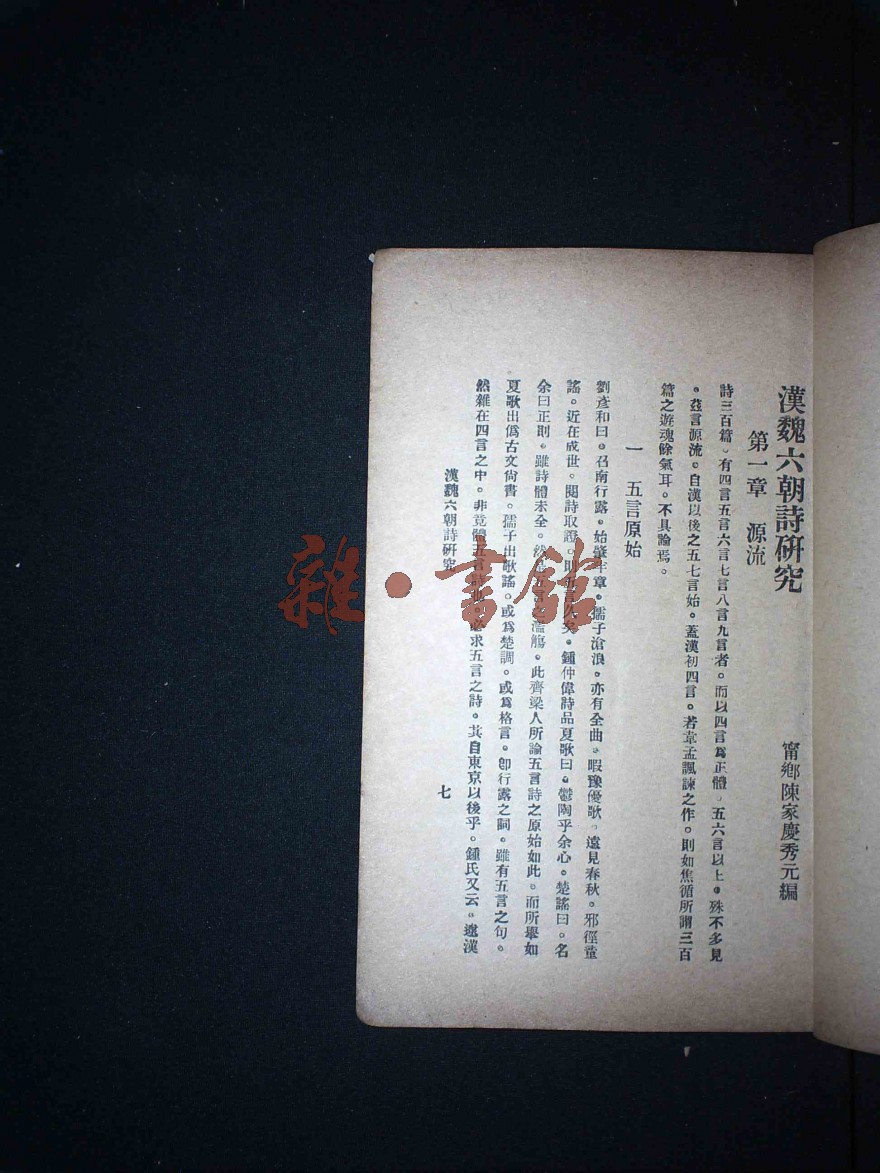 漢魏六朝詩研究
甯鄉陳家慶秀元編
第一章 源流
詩三百篇。有四言五言六言七言八言九言者。而以四言爲正體。五六言以上。殊不多見
。茲言源流。自漢以後之五七言始。蓋漢初四言。若韋孟諷諫之作。則如焦循所謂三百
篇之遊魂餘氣耳。不具論焉。
一 五言原始
劉彥和曰。召南行露。始肇半章。孺子滄浪。亦有全曲。暇豫優歌。遠見春秋。邪徑童
謠。近在成世。閱詩取證。則五言久矣。鍾仲偉詩品夏歌曰。鬱陶乎余心。楚謠曰。名
余曰正則。雖詩體未全。然是五言之濫觴。此齊梁人所論五言詩之原始如此。而所舉如
夏歌出僞古文尙書。孺子出歌謠。或爲楚調。或爲格言。卽行露之詞。雖有五言之句。
然雜在四言之中。非竟體五言詩也。必求五言之詩。其自東京以後乎。鍾氏又云。逮漢
漢魏六朝詩研究
七
雜·書館